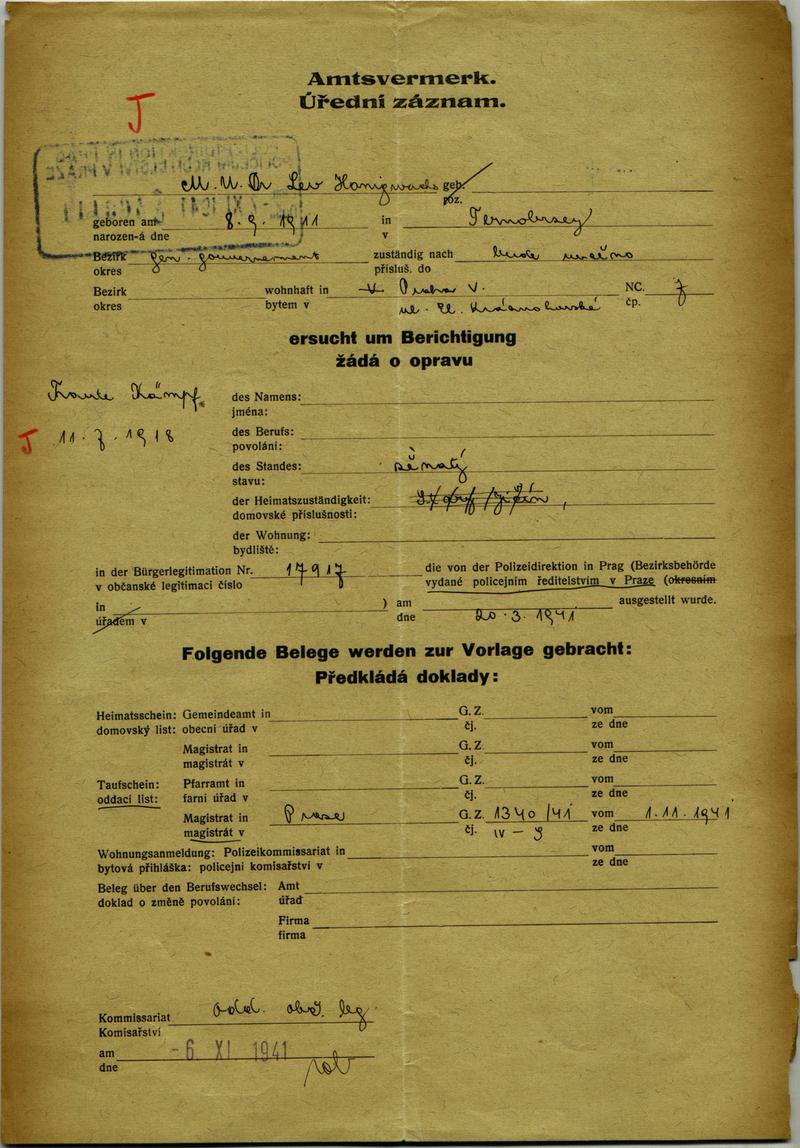 Amtsvermerk.
Úřední záznam.
J
M.U.Dr Lev geb.
roz.
geboren am 8.9.1911 in
narozen-á dne v
Bezirk gen. gouvernement zuständig nach
okres přísluš. do
Bezirk wohnhaft in V. NC. 7
okres bytem v čp.
ersucht um Berichtigung
žádá o opravu
Kämpf des Namens:
jména:
J 11.7.1918 des Berufs:
povolání:
des Standes: ženatý
stavu:
der Heimatszuständigkeit:
domovské příslušnosti:
der Wohnung:
bydliště:
in der Bürgerlegitimation Nr. 17917 die von der Polizeidirektion in Prag (Bezirksbehörde
v občanské legitimaci číslo vydané policejním ředitelstvím v Praze (okresním
in ) am 20.3.1941 ausgestellt wurde.
úřadem v dne
Folgende Belege werden zur Vorlage gebracht:
Předkládá doklady:
Heimatsschein: Gemeindeamt in G. Z. vom
domovský list: obecní úřad v čj. ze dne
Magistrat in G. Z. vom
magistrát v čj. ze dne
Taufschein: Pfarramt in G. Z. vom
oddací list: farní úřad v čj. ze dne
Magistrat in G. Z. 1340/41 vom 1.11.1941
magistrát v čj. IV - 9 ze dne
Wohnungsanmeldung: Polizeikommissariat in vom
bytová přihláška: policejní komisařství v ze dne
Beleg über den Berufswechsel: Amt
doklad o změně povolání: úřad
Firma
firma
Kommissariat odd. obč. leg
Komisařství
am -6. XI. 1941
dne